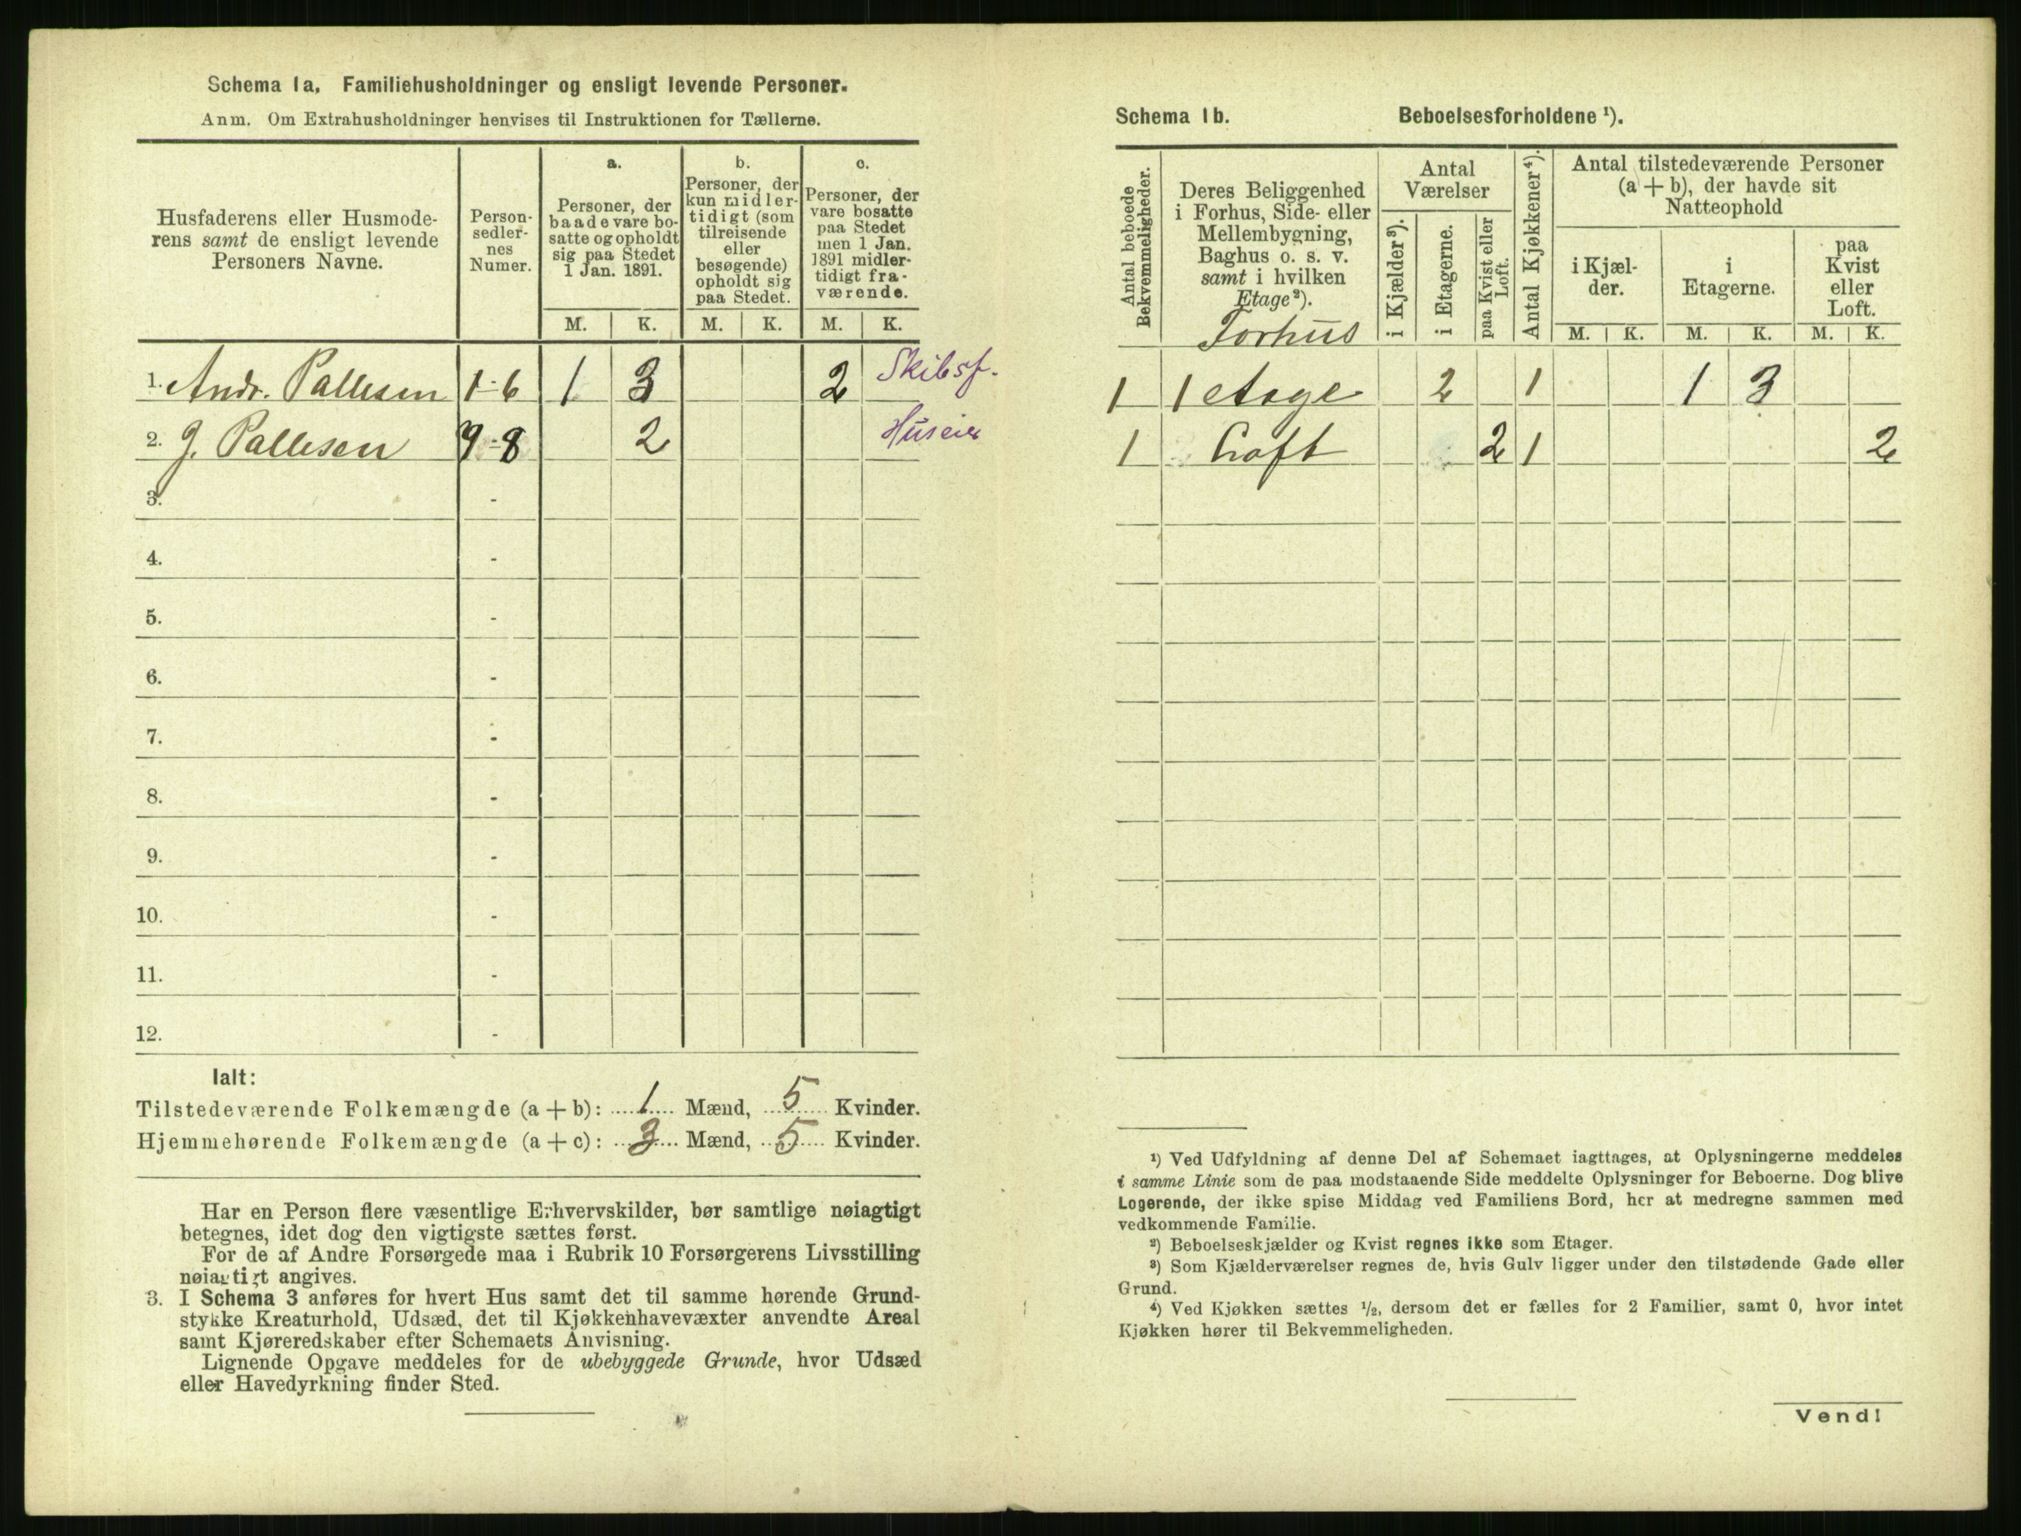 Schema 1a. Familiehusholdninger og ensligt levende Personer.
Anm. Om Extrahusholdninger henvises til Instruktionen for Tællerne.
Husfaderens eller Husmode-
rens samt de ensligt levende
Personers Navne.
Person-
sedler-
nes
Numer.
a.
Personer, der
baade vare bo-
satte og opholdt
sig paa Stedet
1 Jan. 1891.
b.
Personer, der
kun midler-
tidigt (som
tilreisende
eller
besøgende)
opholdt sig
paa Stedet.
c.
Personer, der
vare bosatte
paa Stedet
men 1 Jan.
1891 midler-
tidigt fra-
værende.
M. K. M. K. M. K.
1. Andr. Pallesen 1-6 1 3 2 Skibsf.
2. J. Pallesen 7-8 2 Huseier
3. -
4. -
5. -
6. -
7. -
8. -
9. -
10. -
11. -
12. -
Ialt:
Tilstedeværende Folkemængde (a + b): 1 Mænd, 5 Kvinder.
Hjemmehørende Folkemængde (a + c): 3 Mænd, 5 Kvinder.
Har en Person flere væsentlige Erhvervskilder, bør samtlige nøiagtigt
betegnes, idet dog den vigtigste sættes først.
For de af Andre Forsørgede maa i Rubrik 10 Forsørgerens Livsstilling
nøiagtigt angives.
3. I Schema 3 anføres for hvert Hus samt det til samme hørende Grund-
stykke Kreaturhold, Udsæd, det til Kjøkkenhavevæxter anvendte Areal
samt Kjøreredskaber efter Schemaets Anvisning.
Lignende Opgave meddeles for de ubebyggede Grunde, hvor Udsæd
eller Havedyrkning finder Sted.
Schema 1b. Beboelsesforholdene ¹).
Antal beboede
Bekvemmeligheder.
Deres Beliggenhed
i Forhus, Side- eller
Mellembygning,
Baghus o. s. v.
samt i hvilken
Etage²).
Forhus
Antal
Værelser
i Kjælder³).
i Etagerne.
paa Kvist eller
Loft.
Antal Kjøkkener⁴).
Antal tilstedeværende Personer
(a + b), der havde sit
Natteophold
i Kjæl-
der.
i
Etagerne.
paa
Kvist
eller
Loft.
M. K. M. K. M. K.
1 1 etage 2 1 1 3
1 Loft 2 1 2
¹) Ved Udfyldning af denne Del af Schemaet iagttages, at Oplysningerne meddeles
i samme Linie som de paa modstaaende Side meddelte Oplysninger for Beboerne. Dog blive
Logerende, der ikke spise Middag ved Familiens Bord, her at medregne sammen med
vedkommende Familie.
²) Beboelseskjælder og Kvist regnes ikke som Etager.
³) Som Kjælderværelser regnes de, hvis Gulv ligger under den tilstødende Gade eller
Grund.
⁴) Ved Kjøkken sættes ½, dersom det er fælles for 2 Familier, samt 0, hvor intet
Kjøkken hører til Bekvemmeligheden.
Vend!